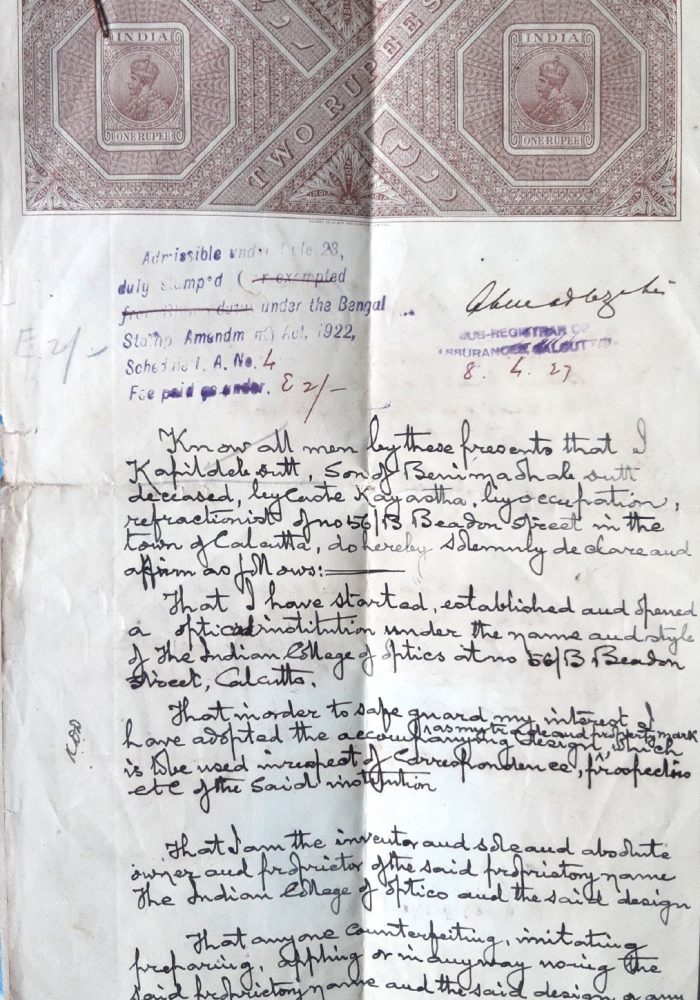 INDIA
INDIA
ONE RUPEE
ONE RUPEE
TWO RUPEES
Admissible under Rule 23,
duly stamped ( or exempted
under the Bengal
Stamp Amendment Act, 1922,
Schedule I, A. No. 4
Fee paid as under. E 2/-
E 2/-
SUB-REGISTRAR OF
ASSURANCES CALCUTTA
8. 4. 27
Know all men by these presents that I
Kapildeb Dutt, Son of Benimadhab Dutt
deceased, by Caste Kayastha, by occupation,
refractionist of no 56/B Beadon Street in the
town of Calcutta, do hereby solemnly declare and
affirm as follows:
That I have started, established and opened
a optical institution under the name and style
of The Indian College of Optics at no 56/B Beadon
Street, Calcutta.
That in order to safe guard my interest I
have adopted the accompanying design, as my trade and property mark which
is to be used in respect of Correspondence, prospectus
etc of the Said institution
KDD
That I am the inventor and sole and absolute
owner and proprietor of the said proprietory name
The Indian College of Optics and the said design
That anyone counterfeiting, imitating
preparing, appling or in anyway using the
said proprietory name and the said design or any